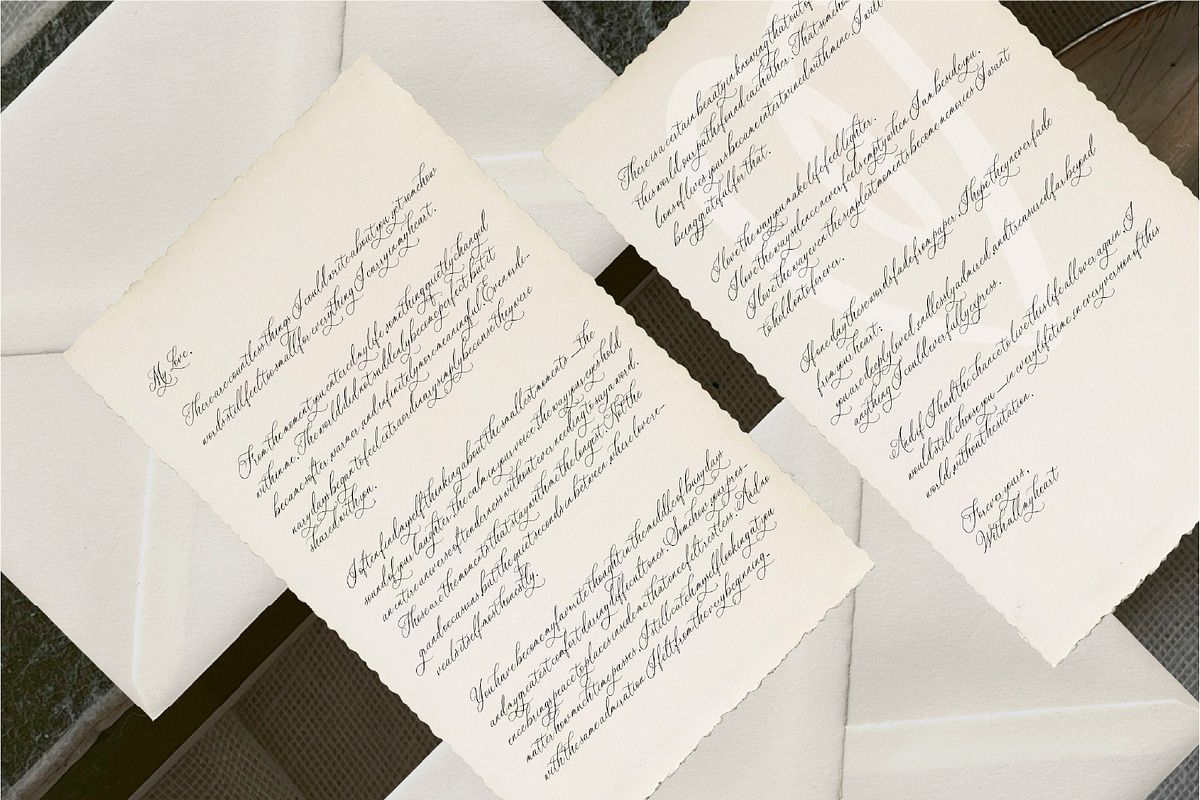 My Love,
There are countless things I could write about you, yet somehow
words still feel too small for everything I carry in my heart.
From the moment you entered my life, something quietly changed
within me. The world did not suddenly become perfect, but it
became softer, warmer, and infinitely more meaningful. Even ordi-
nary days began to feel extraordinary simply because they were
shared with you.
I often find myself thinking about the smallest moments — the
sound of your laughter, the calm in your voice, the way your eyes hold
an entire universe of tenderness without ever needing to say a word.
Those are the moments that stay with me the longest. Not the
grand occasions, but the quiet seconds in between, where love re-
veals itself most honestly.
You have become my favorite thought in the middle of busy days
and my greatest comfort during difficult ones. Somehow, your pres-
ence brings peace to places inside me that once felt restless. And no
matter how much time passes, I still catch myself looking at you
with the same admiration I felt from the very beginning.
There is a certain beauty in knowing that out of
this world, our paths found each other. That somehow
lions of lives, yours became intertwined with mine. I will
being grateful for that.
I love the way you make life feel lighter.
I love the way silence never feels empty when I am beside you.
I love the way even the simplest moments become memories I want
to hold onto forever.
If one day these words fade from paper, I hope they never fade
from your heart:
you are deeply loved, endlessly admired, and treasured far beyond
anything I could ever fully express.
And if I had the chance to live this life all over again, I
would still choose you — in every lifetime, in every version of this
world, without hesitation.
Forever yours,
With all my heart